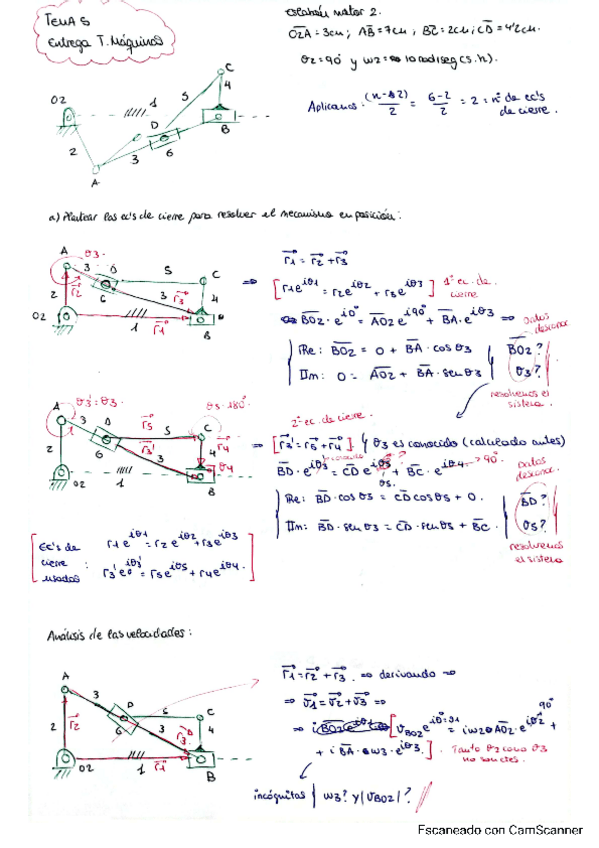 TEMA 5
Entrega T. Máquinas
Eslabón motor 2.
O2A = 3cm ; AB = 7cm ; BC = 2cm ; CD = 4'2cm.
θ2 = 90° y ω2 = 10 rad/seg (s.h).
Aplicamos: (n-2)/2 = 6-2/2 = 2 = nº de ec's
de cierre.
O2
1
2
A
3
D
6
5
C
4
B
a) Plantear las ec's de cierre para resolver el mecanismo en posición:
A
θ3
3
D
5
C
2
r2
6
r3
4
O2
r1
1
B
r1 = r2 + r3
[r1e^iθ1 = r2e^iθ2 + r3e^iθ3] 1ª ec. de
cierre
BO2 · e^i0° = AO2 e^i90° + BA · e^iθ3 ⇒
Datos
desconoc.
Re: BO2 = 0 + BA · cos θ3
Im: 0 = AO2 + BA · sen θ3
BO2?
θ3?
resolvemos el
sistema.
θ3' = θ3
θ3 - 180°
A
3
D
r5
5
C
2
6
r3'
3
r4
4
θ4
O2
1
B
2ª ec. de cierre.
⇒ [r3' = r5 + r4] y θ3 es conocido (calculado antes)
BD · e^iθ3 = CD e^iθ5 + BC · e^iθ4 → 90°
θ5
Datos
desconoc.
Re: BD cos θ3 = CD cos θ5 + 0.
Im: BD · sen θ3 = CD · sen θ5 + BC.
BD?
θ5?
resolvemos
el sistema
Ec's de
cierre
usadas :
r1e^iθ1 = r2e^iθ2 + r3e^iθ3
r3'e^iθ3 = r5e^iθ5 + r4e^iθ4.
Análisis de las velocidades:
A
3
D
5
C
2
r2
6
3
r3
4
O2
1
r1
B
r1 = r2 + r3 ⇒ derivando ⇒
⇒ v1 = v2 + v3 ⇒
90°
[vBO2 e^iθ1 = iω2 AO2 · e^iθ2 +
+ i BA · ω3 · e^iθ3.] Tanto θ2 como θ3
no son ctes.
incógnitas | ω3? y |vBO2|?
Escaneado con CamScanner